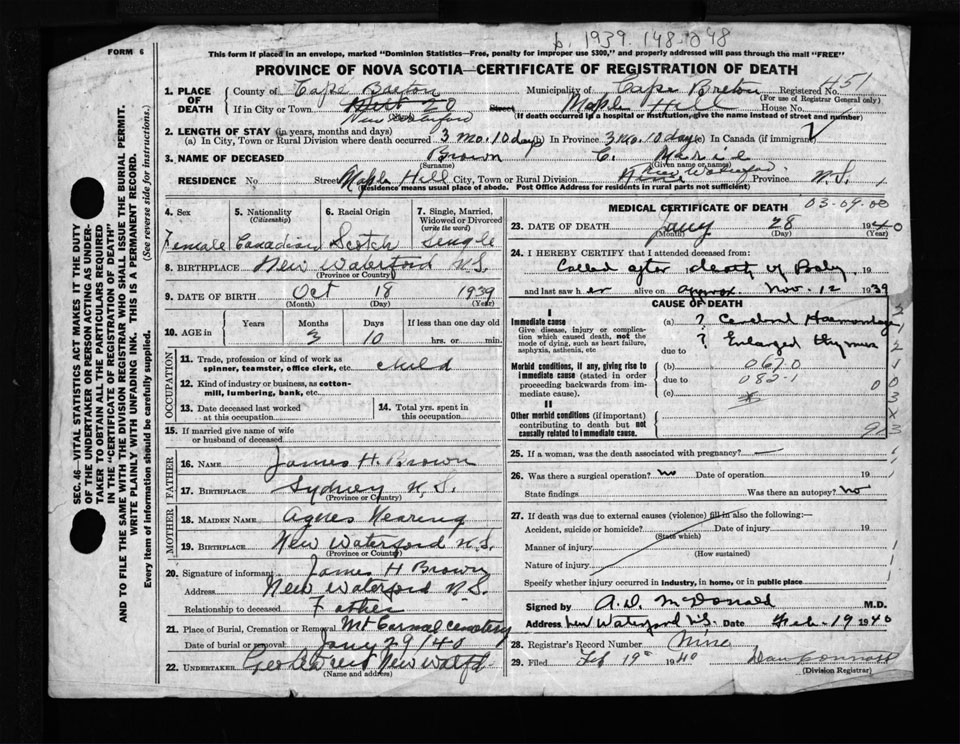 b. 1939. 148-298
FORM 6
This form if placed in an envelope, marked "Dominion Statistics—Free, penalty for improper use $300," and properly addressed will pass through the mail "FREE"
PROVINCE OF NOVA SCOTIA—CERTIFICATE OF REGISTRATION OF DEATH
SEC. 46—VITAL STATISTICS ACT MAKES IT THE DUTY
OF THE UNDERTAKER OR PERSON ACTING AS UNDER-
TAKER TO OBTAIN ALL THE PARTICULARS REQUIRED
IN THE "CERTIFICATE OF REGISTRATION OF DEATH"
AND TO FILE THE SAME WITH THE DIVISION REGISTRAR WHO SHALL ISSUE THE BURIAL PERMIT.
WRITE PLAINLY WITH UNFADING INK. THIS IS A PERMANENT RECORD.
Every item of information should be carefully supplied. (See reverse side for instructions.)
1. PLACE OF DEATH County of Cape Breton Municipality of Cape Breton Registered No. H51
(For use of Registrar General only)
If in City or Town Dist 20 Street Maple Hill House No.
New Waterford (If death occurred in a hospital or institution, give the name instead of street and number)
2. LENGTH OF STAY (in years, months and days)
(a) In City, Town or Rural Division where death occurred 3 mo. 10 days (b) In Province 3 mo. 10 days (c) In Canada (if immigrant)
3. NAME OF DECEASED Brown C. Marie
(Surname) (Given name or names)
RESIDENCE No. Street Maple Hill City, Town or Rural Division New Waterford Province N.S.
(Residence means usual place of abode. Post Office Address for residents in rural parts not sufficient)
4. Sex 5. Nationality (Citizenship) 6. Racial Origin 7. Single, Married, Widowed or Divorced (write the word)
Female Canadian Scotch Single
8. BIRTHPLACE New Waterford N.S.
(Province or Country)
9. DATE OF BIRTH Oct 18 1939
(Month) (Day) (Year)
10. AGE in Years Months Days If less than one day old
3 10 hrs. or min.
OCCUPATION
11. Trade, profession or kind of work as spinner, teamster, office clerk, etc. Child
12. Kind of industry or business, as cotton-mill, lumbering, bank, etc.
13. Date deceased last worked at this occupation
14. Total yrs. spent in this occupation
15. If married give name of wife or husband of deceased
FATHER
16. NAME James H. Brown
17. BIRTHPLACE Sydney N.S.
(Province or Country)
MOTHER
18. MAIDEN NAME Agnes Nearing
19. BIRTHPLACE New Waterford N.S.
(Province or Country)
20. Signature of informant James H Brown
Address New Waterford N.S.
Relationship to deceased Father
21. Place of Burial, Cremation or Removal Mt Carmel Cemetery
Date of burial or removal Jany 29/40
22. UNDERTAKER New Watfd.
(Name and address)
MEDICAL CERTIFICATE OF DEATH 03-09-00
23. DATE OF DEATH Jany 28 1940
(Month) (Day) (Year)
24. I HEREBY CERTIFY that I attended deceased from:
Called after death of Baby 19
and last saw her alive on approx. Nov. 12 1939
CAUSE OF DEATH
I
Immediate cause (a) ? Cerebral Haemorrhage
Give disease, injury or complication which caused death, not the mode of dying, such as heart failure, asphyxia, asthenia, etc. due to ? Enlarged thymus
Morbid conditions, if any, giving rise to immediate cause (stated in order proceeding backwards from immediate cause). (b) 067.0
due to 082-1
(c)
II
Other morbid conditions (if important) contributing to death but not causally related to immediate cause.
25. If a woman, was the death associated with pregnancy? —
26. Was there a surgical operation? no Date of operation 19
State findings Was there an autopsy? no
27. If death was due to external causes (violence) fill in also the following:—
Accident, suicide or homicide? Date of injury 19
(State which)
Manner of injury
(How sustained)
Nature of injury
Specify whether injury occurred in industry, in home, or in public place
Signed by A.D. McDonald M.D.
Address New Waterford N.S. Date Feb. 19 1940
28. Registrar's Record Number Nine
29. Filed Feb 19 1940
(Division Registrar)